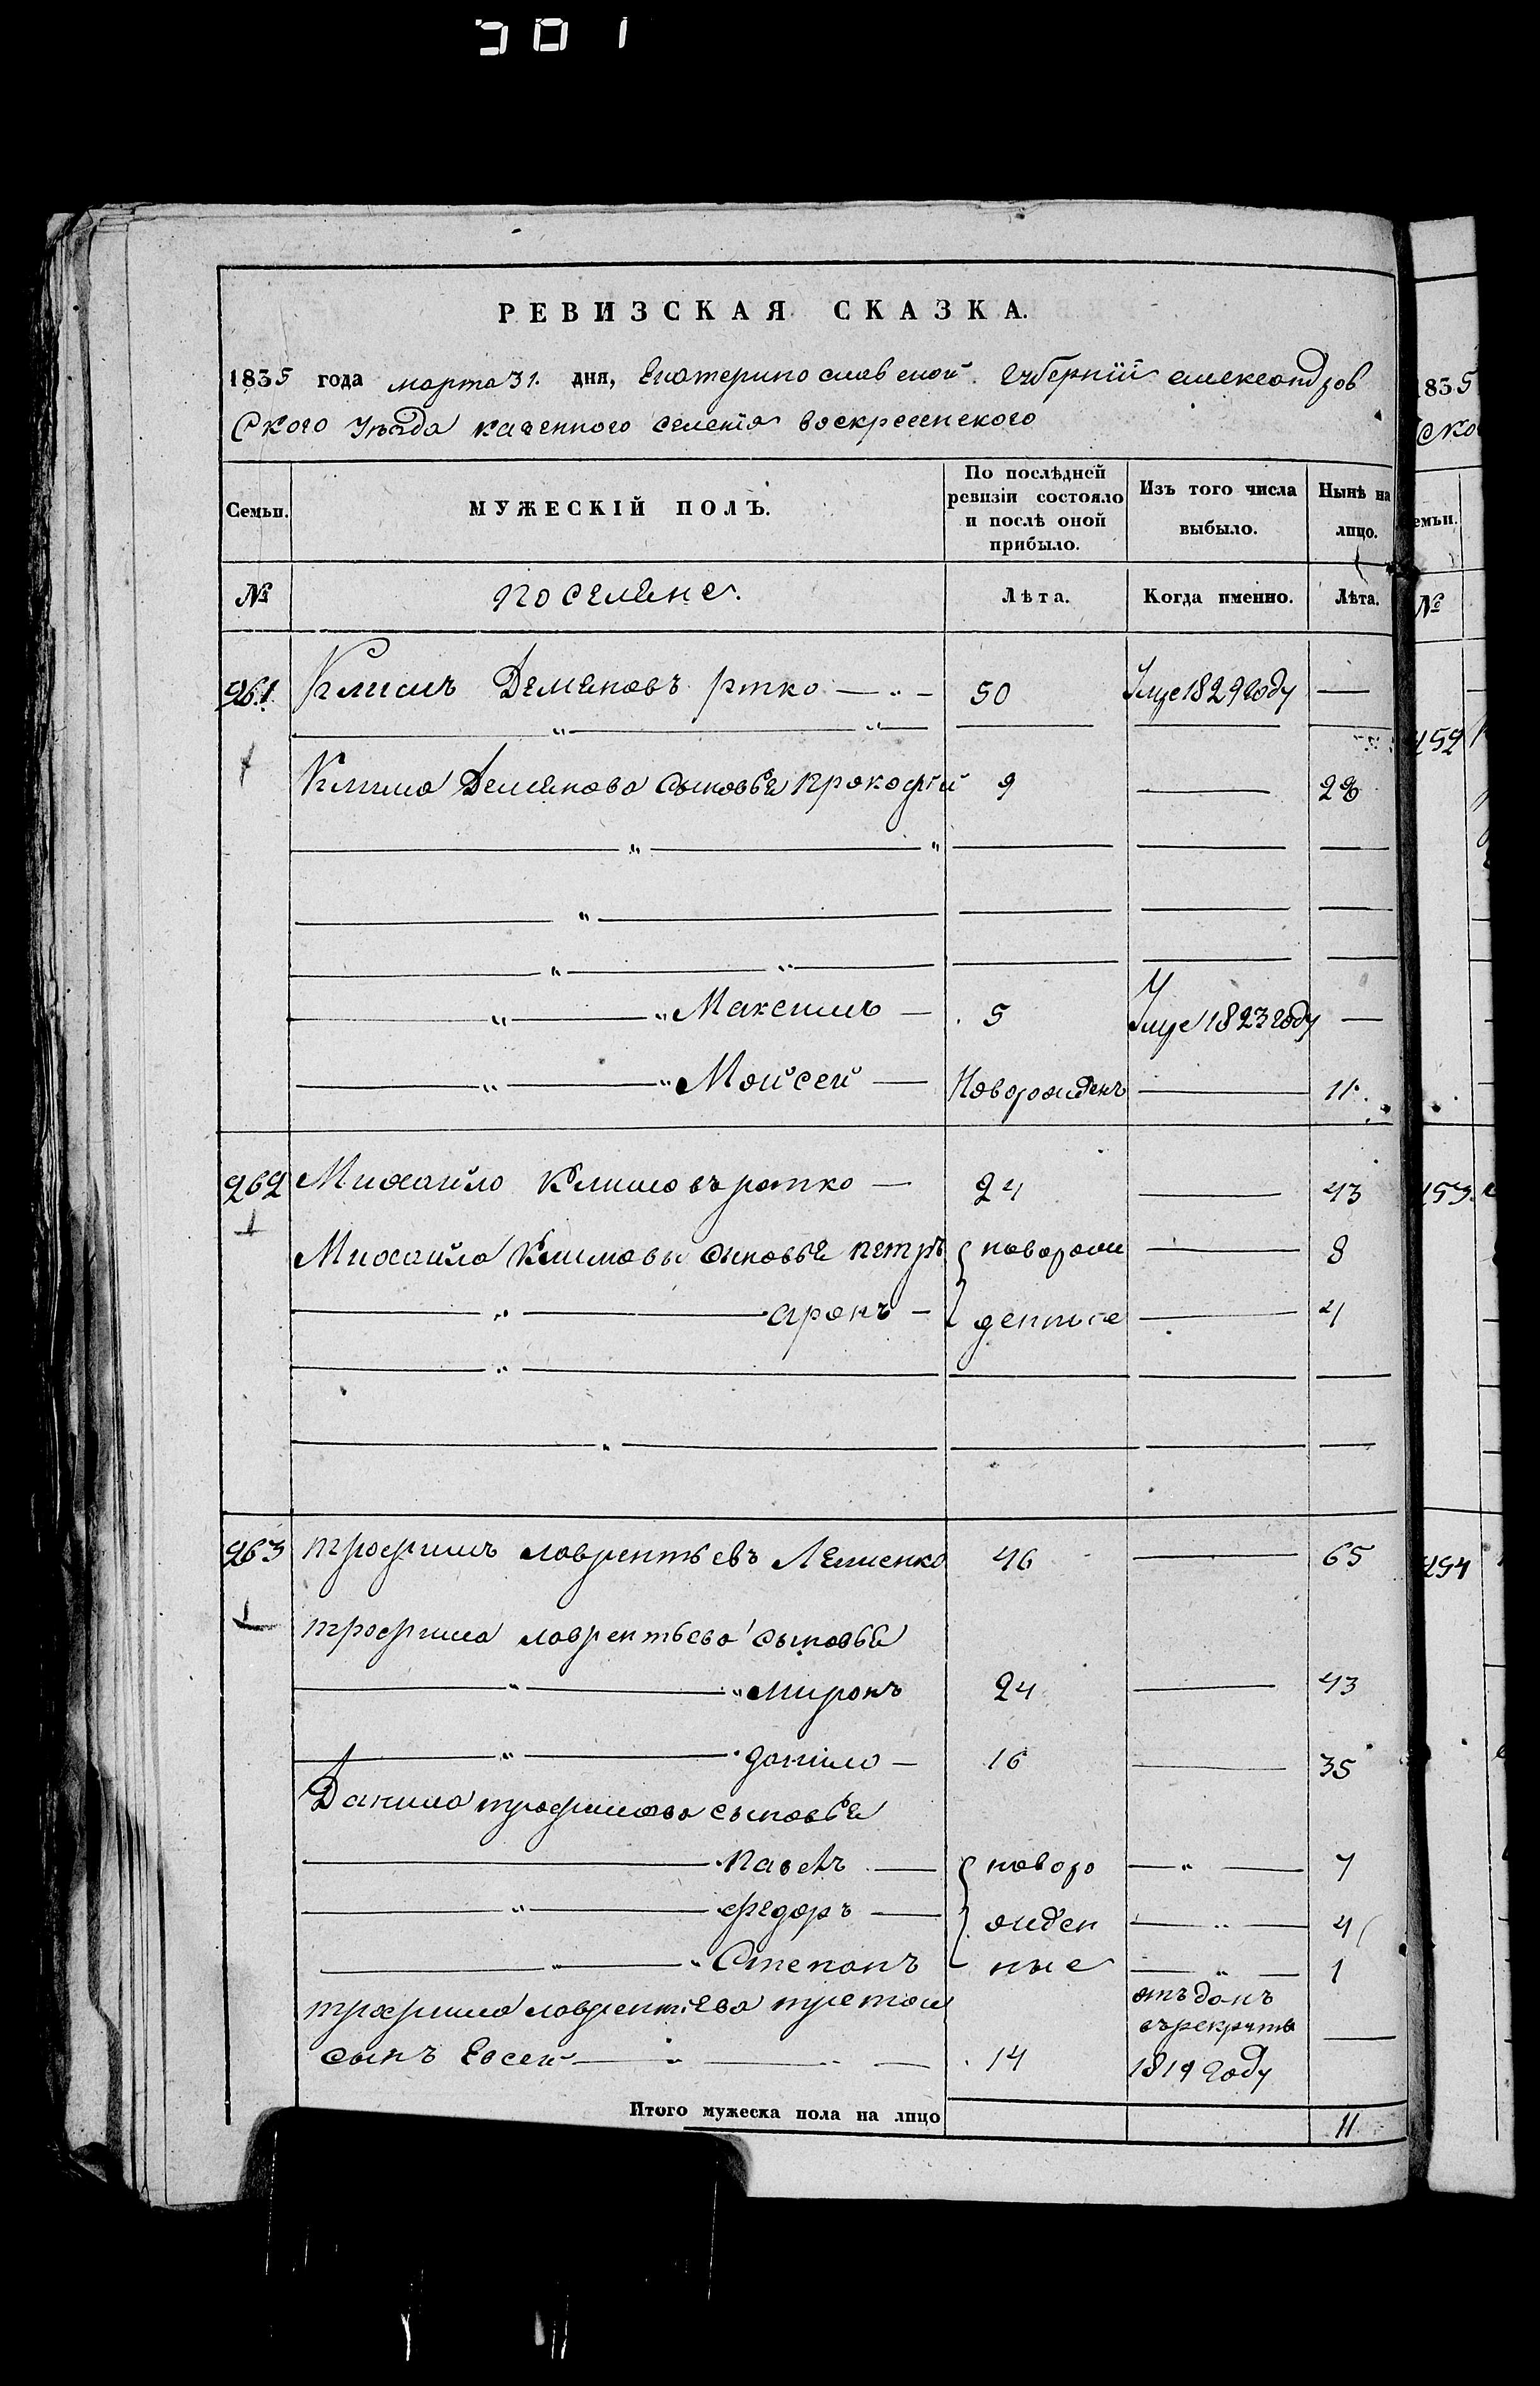 301
РЕВИЗСКАЯ СКАЗКА.
1835 года марта 31. дня, Екатеринославской Губернїи александров
Ского Уѣзда казенного селенїя воскресенского
Семьи. МУЖЕСКІЙ ПОЛЪ. По послѣдней ревизіи состояло и послѣ оной прибыло. Изъ того числа выбыло. Нынѣ на лицо.
№ поселяне. Лѣта. Когда именно. Лѣта.
261 Климъ Демяновъ 50 Умре 1829 году
Клима Демянова сыновья прокофїй 9 28
Максимъ 5 Умре 1823 году
Моисей Новорожденъ 11
262 Михайло Климовъ 24 43
Михайла Климовы сыновья петръ новорож 8
аронъ денные 4
263 трофимъ лаврентьевъ Лемешко 46 65
трофима лаврентьева сыновья
миронъ 24 43
данило 16 35
Данила трофимова сыновья
павелъ новоро 7
федоръ жден 4
Степанъ ные 1
трофима лаврентїева третой отъ данъ
сынъ Евсей 14 въ рекруты
1819 году
Итого мужеска пола на лицо 11
1835
ско
емьи.
№
252
253
254